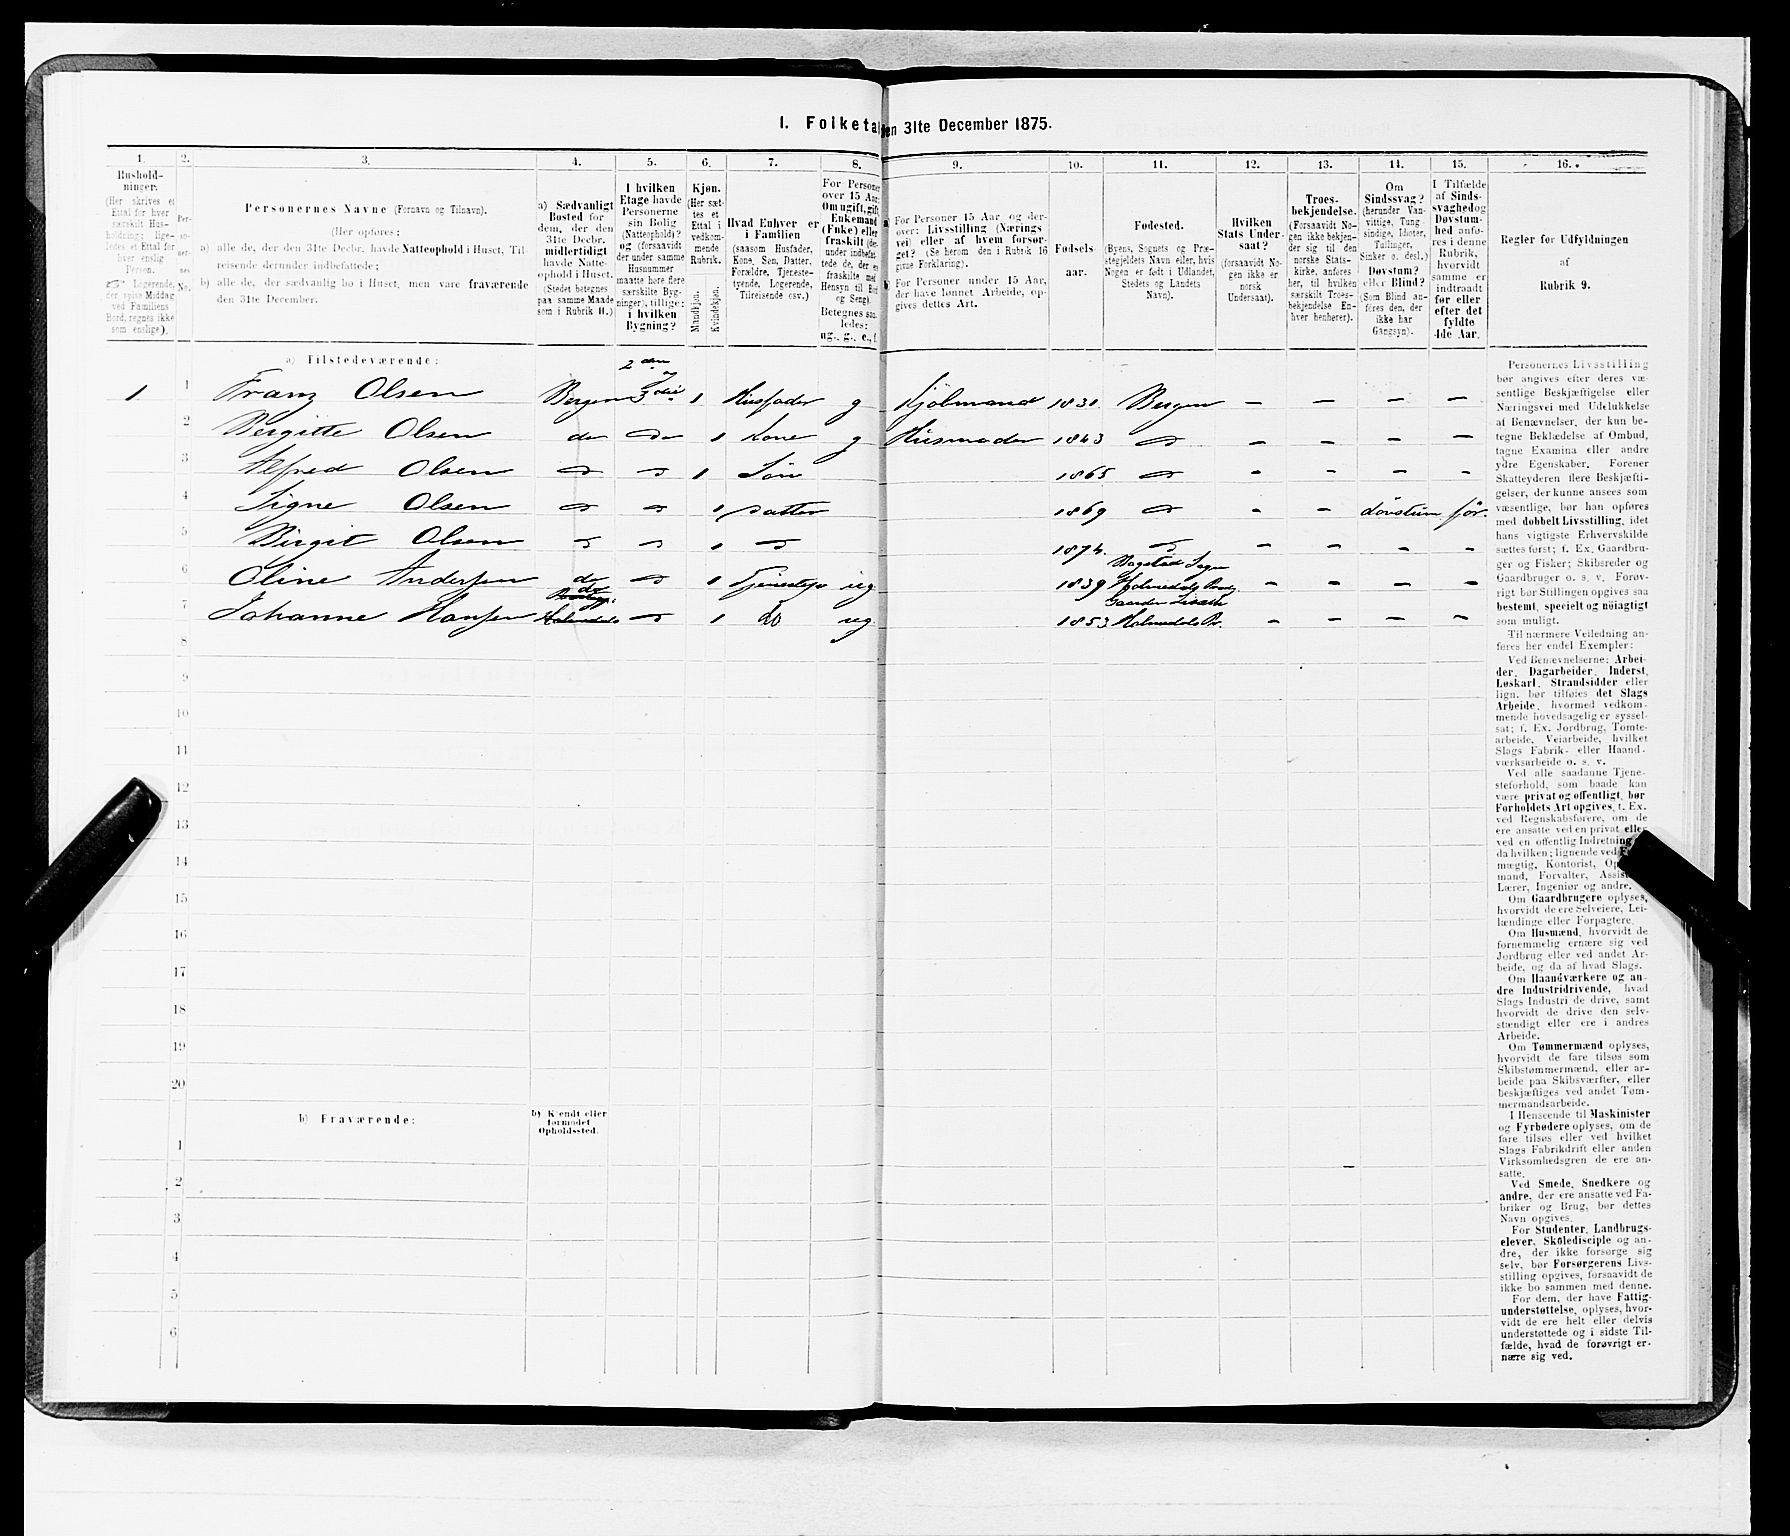 I. Folketal den 31te December 1875.
1. 2. 3. 4. 5. 6. 7. 8. 9. 10. 11. 12. 13. 14. 15. 16.
Husholdninger. (Her skrives et Ettal for hver særskilt Husholdning; ligeledes et Ettal for hver enslig Person. Logerende, der spise Middag ved Familiens Bord, regnes ikke som enslige).
Personernes No.
Personernes Navne (Fornavn og Tilnavn).
(Her opføres:
a) alle de, der den 31te Decbr. havde Natteophold i Huset, Tilreisende derunder indbefattede;
b) alle de, der sædvanlig bo i Huset, men vare fraværende den 31te December.
a) Sædvanligt Bosted for dem, der den 31te Decbr. midlertidigt havde Natteophold i Huset. (Stedet betegnes paa samme Maade som i Rubrik 11.)
I hvilken Etage havde Personerne sin Bolig (Natteophold)? og (forsaavidt der under samme Husnummer maatte høre flere særskilte Bygninger), tillige: i hvilken Bygning?
Kjøn. (Her sættes et Ettal i vedkommende Rubrik.
Mandkjøn. Kvindekjøn.
Hvad Enhver er i Familien (saasom Husfader, Kone, Søn, Datter, Forældre, Tjenestetyende, Logerende, Tilreisende osv.)
For Personer over 15 Aar: Om ugift, gift, Enkemand (Enke) eller fraskilt (derunder indbefattede de, der ere fraskilte med Hensyn til Bord og Seng). Betegnes saaledes: ug., g., e., f.
a) For Personer 15 Aar og derover: Livsstilling (Næringsvei) eller af hvem forsørget? (Se herom den i Rubrik 16 givne Forklaring).
b) For Personer under 15 Aar, der have lønnet Arbeide, opgives dettes Art.
Fødselsaar.
Fødested. (Byens, Sognets og Præstegjeldets Navn eller, hvis Nogen er født i Udlandet, Stedets og Landets Navn).
Hvilken Stats Undersaat? (forsaavidt Nogen ikke er norsk Undersaat).
Troesbekjendelse. (Forsaavidt Nogen ikke bekjender sig til den norske Statskirke, anføres her, til hvilken særskilt Troesbekjendelse Enhver henhører).
Om Sindssvag? (herunder Vanvittige, Tungsindige, Idioter, Tullinger, Sinker o. desl.) Døvstum? eller Blind? (Som Blind anføres den, der ikke har Gangsyn).
I Tilfælde af Sindssvaghed og Døvstumhed anføres i denne Rubrik, hvorvidt samme er indtraadt før eller efter det fyldte 4de Aar.
Regler for Udfyldningen af Rubrik 9.
a) Tilstedeværende:
1 1 Franz Olsen Bergen 2den og 3die 1 Husfader g Kjøbmand 1831. Bergen - - - -
2 Bergitte Olsen do do 1 Kone g Husmoder 1843 do - - - -
3 Alfred Olsen do do 1 Søn 1865 do - - - -
4 Signe Olsen do do 1 Datter 1869 do - - døvstum før.
5 Birgit Olsen do do 1 do 1874. do - - - -
6 Oline Andersen do do 1 Tjenestepi ug 1839 Sogn Holmedals - - - -
7 Johanne Hansen do Holmedals do 1 do ug 1853 Gaarden Holmedals Pr. - - - -
8
9
10
11
12
13
14
15
16
17
18
19
20
b) Fraværende: b) Kjendt eller formodet Opholdssted.
1
2
3
4
5
6
Personernes Livsstilling
bør angives efter deres væ-
sentlige Beskjæftigelse eller
Næringsvei med Udelukkelse
af Benævnelser, der kun be-
tegne Beklædelse af Ombud,
tagne Examina eller andre
ydre Egenskaber. Forener
Skatteyderen flere Beskjæfti-
gelser, der kunne ansees som
væsentlige, bør han opføres
med dobbelt Livsstilling, idet
hans vigtigste Erhvervskilde
sættes først; f. Ex. Gaardbru-
ger og Fisker; Skibsreder og
Gaardbruger o. s. v. Forøv-
rigt bør Stillingen opgives saa
bestemt, specielt og nöiagtigt
som muligt.
Til nærmere Veiledning an-
føres her endel Exempler:
Ved Benævnelserne: Arbei-
der, Dagarbeider, Inderst,
Løskarl, Strandsidder eller
lign. bør tilføies det Slags
Arbeide, hvormed vedkom-
mende hovedsagelig er syssel-
sat; f. Ex. Jordbrug, Tomte-
arbeide, Veiarbeide, hvilket
Slags Fabrik- eller Haand-
værksarbeide o. s. v.
Ved alle saadanne Tjene-
steforhold, som baade kan
være privat og offentligt, bør
Forholdets Art opgives, f. Ex.
ved Regnskabsførere, om de
ere ansatte ved en privat eller
ved en offentlig Indretning og
da hvilken; lignende ved
mægtig, Kontorist,
mand, Forvalter,
Lærer, Ingeniør og andre.
Om Gaardbrugere oplyses,
hvorvidt de ere Selveiere, Lei-
lændinge eller Forpagtere.
Om Husmænd, hvorvidt de
fornemmelig ernære sig ved
Jordbrug eller ved andet Ar-
beide, og da af hvad Slags.
Om Haandværkere og an-
dre Industridrivende, hvad
Slags Industri de drive, samt
hvorvidt de drive den selv-
stændigt eller ere i andres
Arbeide.
Om Tømmermænd oplyses,
hvorvidt de fare tilsøs som
Skibstømmermænd, eller ar-
beide paa Skibsværfter, eller
beskjæftiges ved andet Tøm-
mermandsarbeide.
I Henseende til Maskinister
og Fyrbødere oplyses, om de
fare tilsøs eller ved hvilket
Slags Fabrikdrift eller anden
Virksomhedsgren de ere an-
satte.
Ved Smede, Snedkere og
andre, der ere ansatte ved Fa-
briker og Brug, bør dettes
Navn opgives.
For Studenter, Landbrugs-
elever, Skoledisciple og an-
dre, der ikke forsørge sig
selv, bør Forsørgerens Livs-
stilling opgives, forsaavidt de
ikke bo sammen med denne.
For dem, der have Fattig-
understøttelse, oplyses, hvor-
vidt de ere helt eller delvis
understøttede og i sidste Til-
fælde, hvad de forøvrigt er-
nære sig ved.